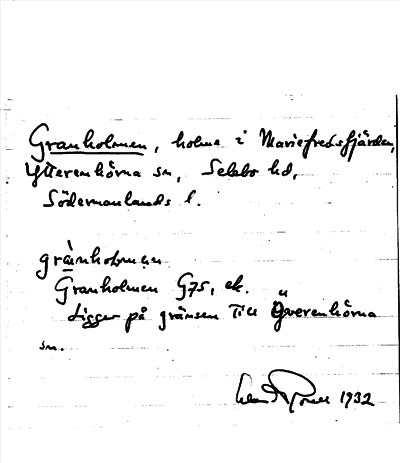 Granholmen, holme i Mariefredsfjärden,
Ytterenhörna sn, Selebo hd,
Södermanlands l.
grànholmen
Granholmen G75, ek.
Ligger på gränsen till Överenhörna
sn.
1932